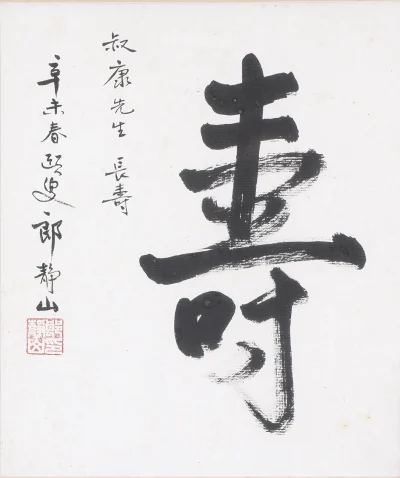 壽
叔康先生 長壽
辛未春熙叟郎靜山